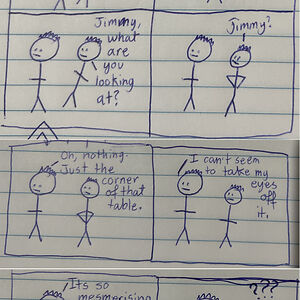 Jimmy,
what
are
you
looking
at?
Jimmy?
Oh, nothing.
Just the
corner
of that
table.
I can't seem
to take my
eyes
off
it.
Its so
mesmerising
???